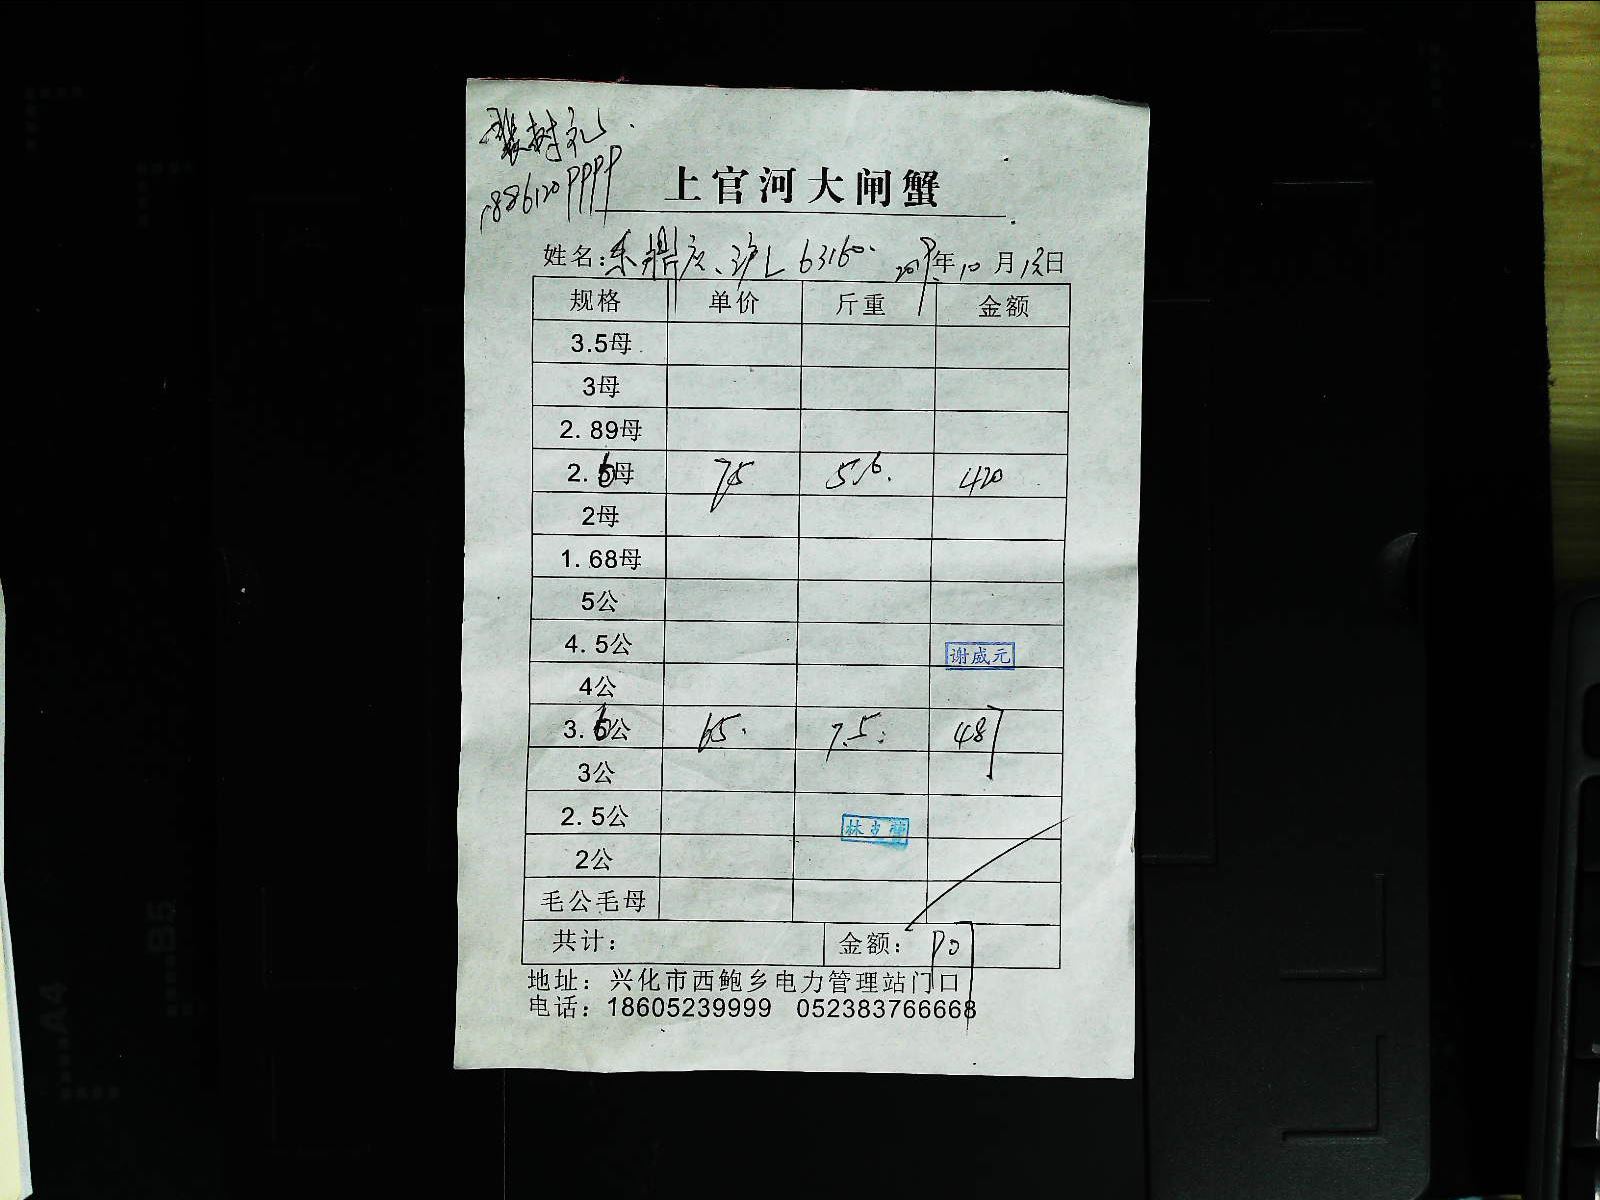 树礼
上官河大闸蟹
姓名: 63160. 2019年10月13日
规格 单价 斤重 金额
3.5母
3母
2.89母
2.6母 75 5.6. 420
2母
1.68母
5公
4.5公
谢威元
4公
3.6公 65. 7.5. 487
3公
2.5公
2公
毛公毛母
共计: 金额: 907
地址: 兴化市西鲍乡电力管理站门口
电话: 18605239999 052383766668